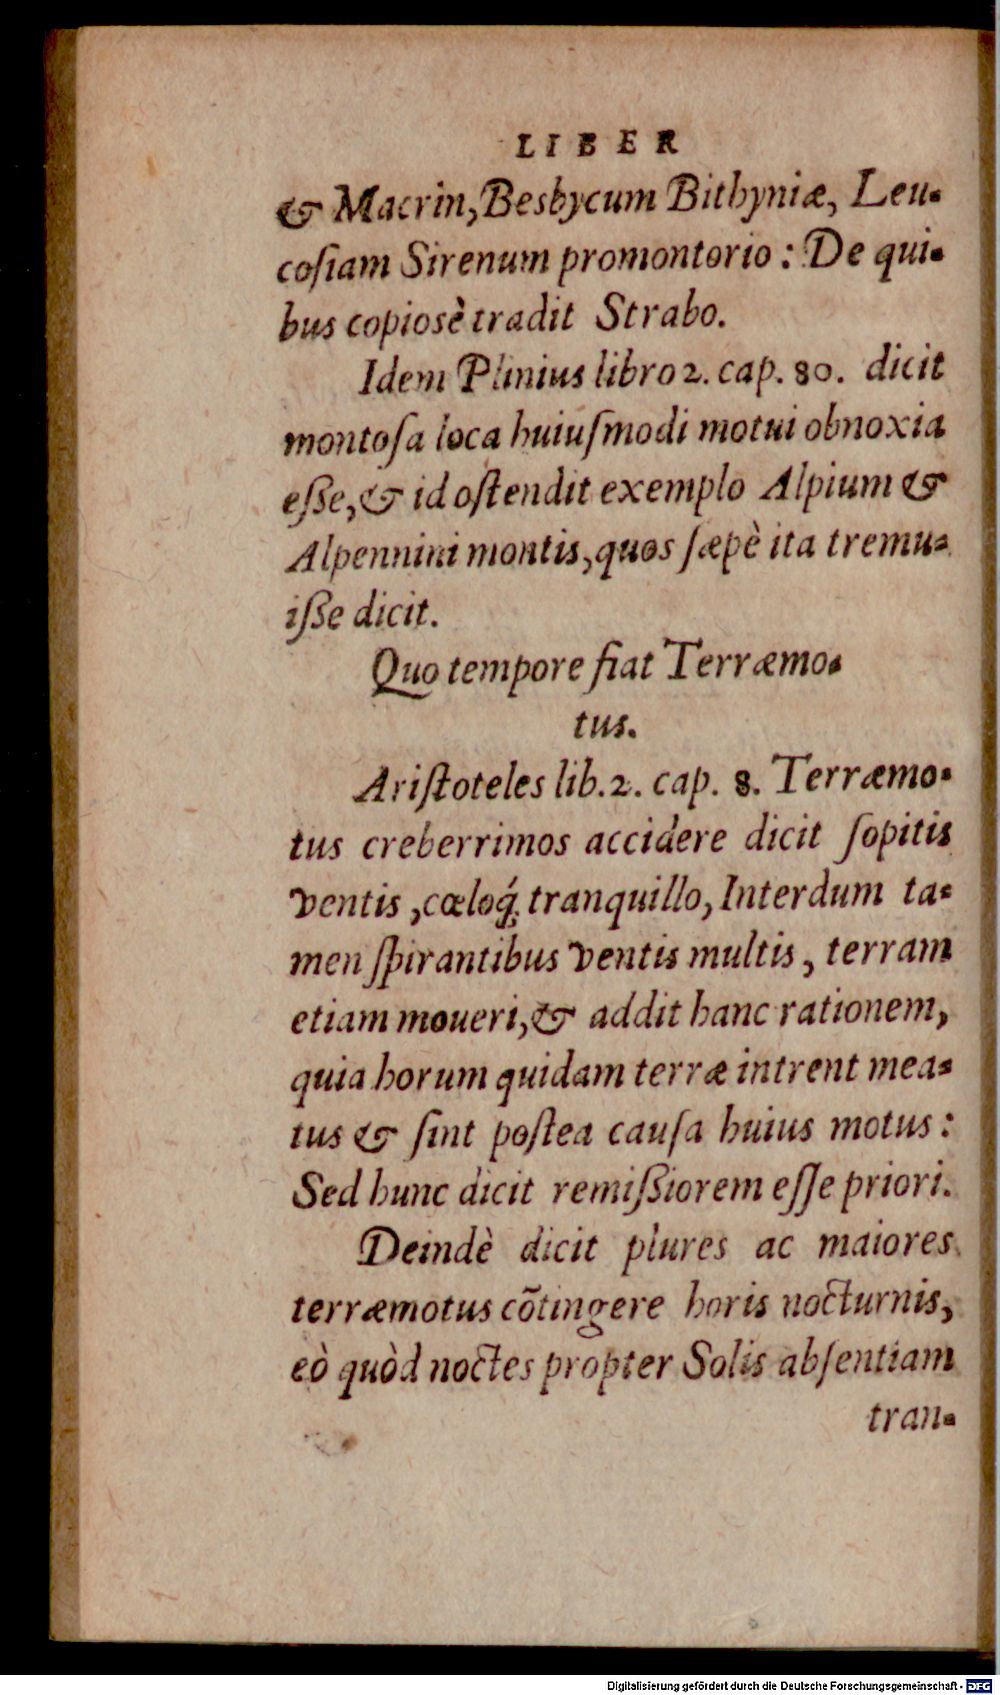 LIBER
& Macrin, Besbycum Bithyniæ, Leu-
coſiam Sirenum promontorio: De qui-
bus copiosè tradit Strabo.
Idem Plinius libro 2. cap. 80. dicit
montoſa loca huiuſmodi motui obnoxia
eſſe, & id oſtendit exemplo Alpium &
Alpennini montis, quos ſæpè ita tremu-
iſſe dicit.
Quo tempore fiat Terræmo-
tus.
Ariſtoteles lib. 2. cap. 8. Terræmo-
tus creberrimos accidere dicit ſopitis
ventis, cœloq́; tranquillo, Interdum ta-
men ſpirantibus ventis multis, terram
etiam moueri, & addit hanc rationem,
quia horum quidam terræ intrent mea-
tus & ſint poſtea cauſa huius motus:
Sed hunc dicit remiſſiorem eſſe priori.
Deindè dicit plures ac maiores
terræmotus cõtingere horis nocturnis,
eò quòd noctes propter Solis abſentiam
tran-
Digitalisierung gefördert durch die Deutsche Forschungsgemeinschaft - DFG